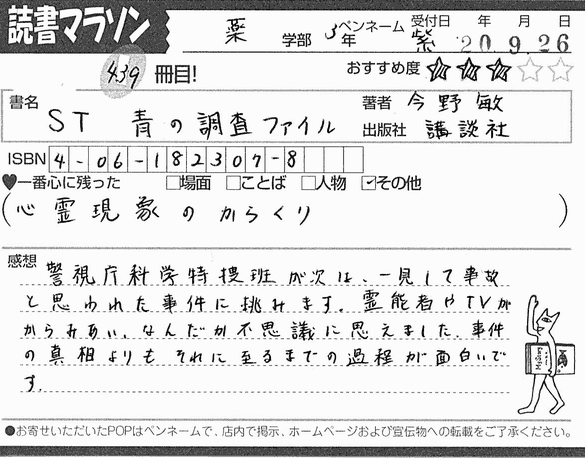 読書マラソン 薬 学部 3年 ペンネーム 紫 受付日 年 月 日 20.9.26
439 冊目! おすすめ度 ★★★☆☆
書名 ST 青の調査ファイル
著者 今野敏
出版社 講談社
ISBN 4-06-182307-8
♥一番心に残った □場面 □ことば □人物 ☑その他
(心霊現象のからくり)
感想 警視庁科学特捜班が次は、一見して事故
と思われた事件に挑みます。霊能者やTVが
からみあい、なんだか不思議に思えました。事件
の真相よりもそれに至るまでの過程が面白いで
す。
●お寄せいただいたPOPはペンネームで、店内で掲示、ホームページおよび宣伝物への転載をご了承ください。